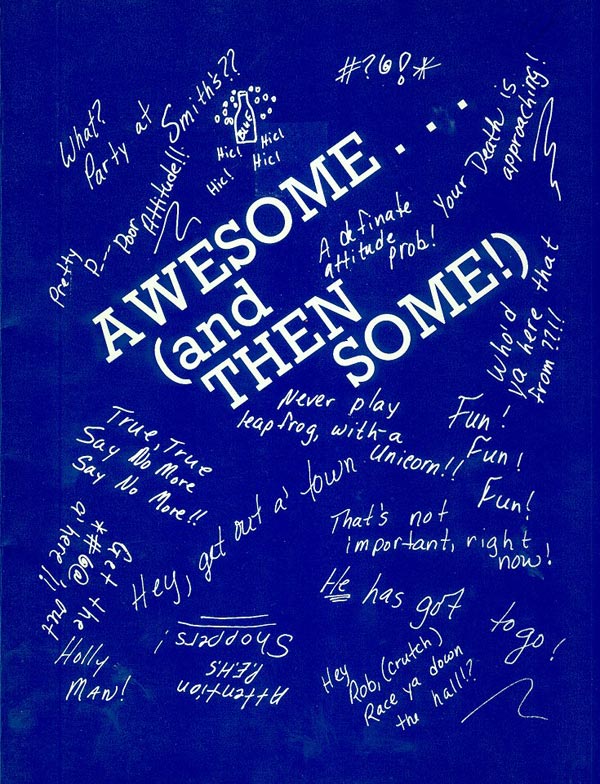 What?
Party at
Smith's??
BLUE
Hic! Hic!
Hic! Hic!
#?@!*
Your Death is
approaching!
Pretty
P— Poor
Attitude!!
A definate
attitude
prob!
AWESOME...
(and
THEN
SOME!)
Who'd
ya here that
from??!!
Never play
leapfrog, with-a
Unicorn!!
Fun!
Fun!
Fun!
True, True
Say No More
Say No More!!
Hey, get out a' town
That's not
important, right
now!
Get the
*#@@ out
a' here!!
He has got to go!
Holly
MAN!
Attention
P.E.H.S.
Shoppers!
Hey
Rob, (crutch)
Race ya down
the hall!?